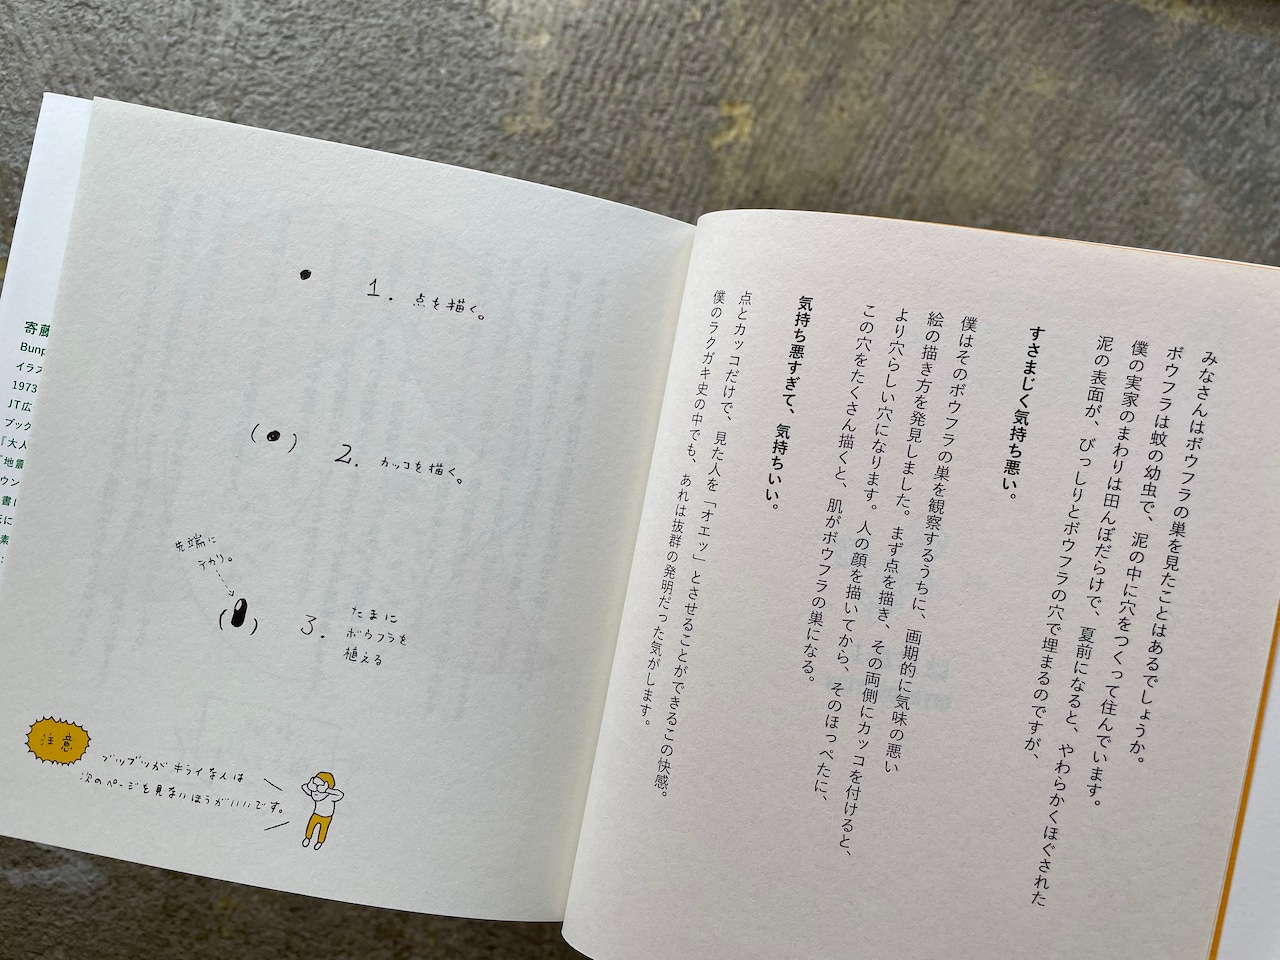 みなさんはボウフラの巣を見たことはあるでしょうか。
ボウフラは蚊の幼虫で、泥の中に穴をつくって住んでいます。
僕の実家のまわりは田んぼだらけで、夏前になると、やわらかくほぐされた
泥の表面が、びっしりとボウフラの穴で埋まるのですが、
すさまじく気持ち悪い。
僕はそのボウフラの巣を観察するうちに、画期的に気味の悪い
絵の描き方を発見しました。まず点を描き、その両側にカッコを付けると、
より穴らしい穴になります。人の顔を描いてから、そのほっぺたに、
この穴をたくさん描くと、肌がボウフラの巣になる。
気持ち悪すぎて、気持ちいい。
点とカッコだけで、見た人を「オエッ」とさせることができるこの快感。
僕のラクガキ史の中でも、あれは抜群の発明だった気がします。
1. 点を描く。
( ) 2. カッコを描く。
先端に
テカり。
( ) 3. たまに
ボウフラを
植える
注意
ブツブツがキライな人は
次のページを見ないほうがいいです。
寄藤
Bunp
イラス
1973
JT広
ブック
『大人
『地震
ウン
書に
死に
素